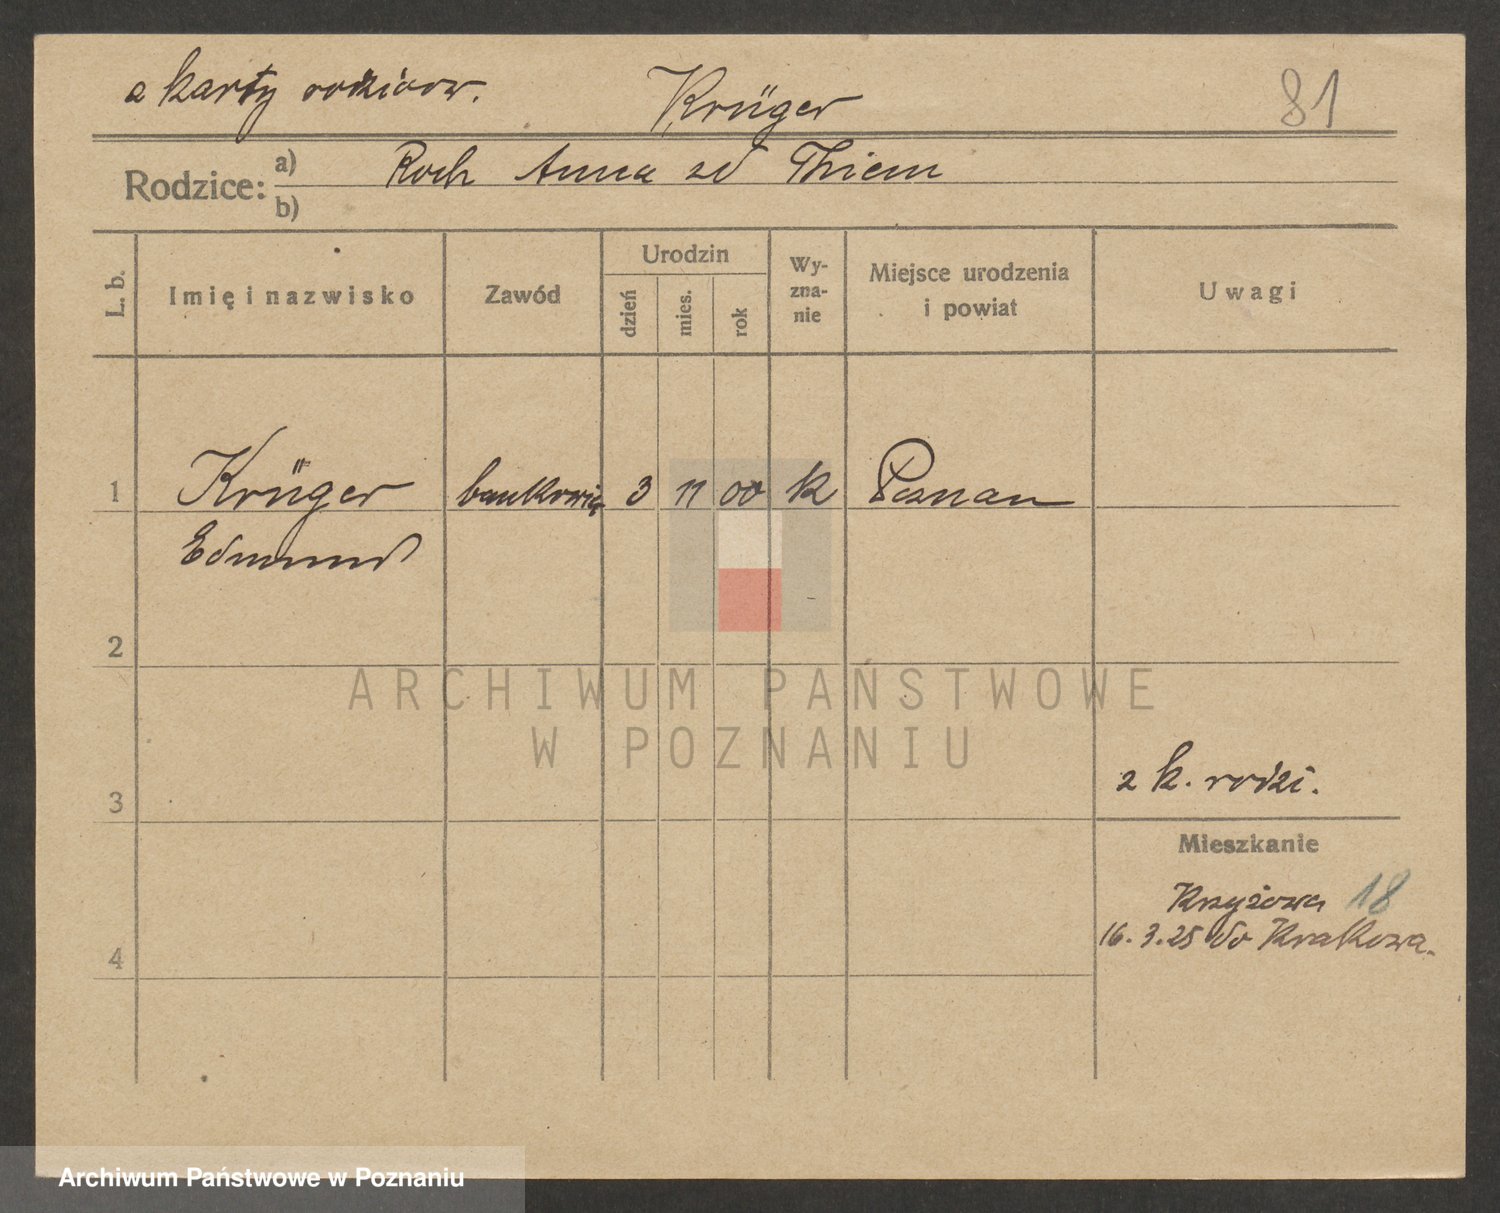 z karty rodziców. Krüger 81
Rodzice: a) Roch Anna zd Thiem
b)
L. b. Imię i nazwisko Zawód Urodzin dzień mies. rok Wy-zna-nie Miejsce urodzenia i powiat Uwagi
1 Krüger bankowiec 3 11 00 k Poznan
Edmund
2
ARCHIWUM PAŃSTWOWE
W POZNANIU
z k. rodzi.
3
Mieszkanie
Krzyżowa 18
16.3.25 do Krakowa.
4
Archiwum Państwowe w Poznaniu